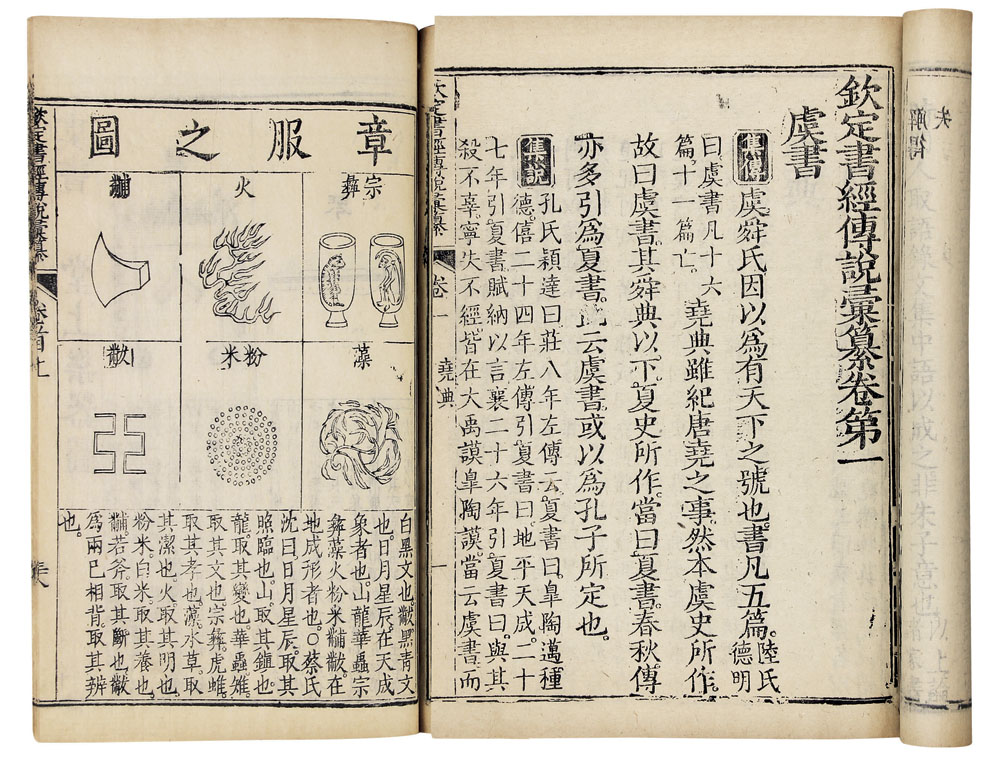 欽定書經傳說彙纂卷第一
虞書
集傳 虞舜氏因以為有天下之號也。書凡五篇。陸氏德明
曰虞書凡十六篇十一篇亡。堯典雖紀唐堯之事。然本虞史所作。
故曰虞書。其舜典以下。夏史所作。當曰夏書。春秋傳
亦多引為夏書。此云虞書。或以為孔子所定也。
集說 孔氏穎達曰莊八年左傳云夏書曰皐陶邁種
德。僖二十四年左傳引夏書曰地平天成。二十
七年引夏書賦納以言襄二十六年引夏書曰與其
殺不辜寧失不經皆在大禹謨皐陶謨當云虞書而
欽定書經傳說彙纂 卷一 堯典 一
章服之圖
宗彝
火
黼
藻
粉米
黻
白黑文也。黻黑青文
也。日月星辰在天成
象者也。山龍華蟲宗
彝藻火粉米黼黻。在
地成形者也。○蔡氏
沈曰日月星辰。取其
照臨也。山取其鎮也。
龍。取其變也。華蟲雉。
取其文也。宗彝。虎蜼
取其孝也。藻。水草。取
其潔也。火。取其明也。
粉米。白米取其養也。
黼。若斧。取其斷也。黻
為兩己相背。取其辨
也。
欽定書經傳說彙纂